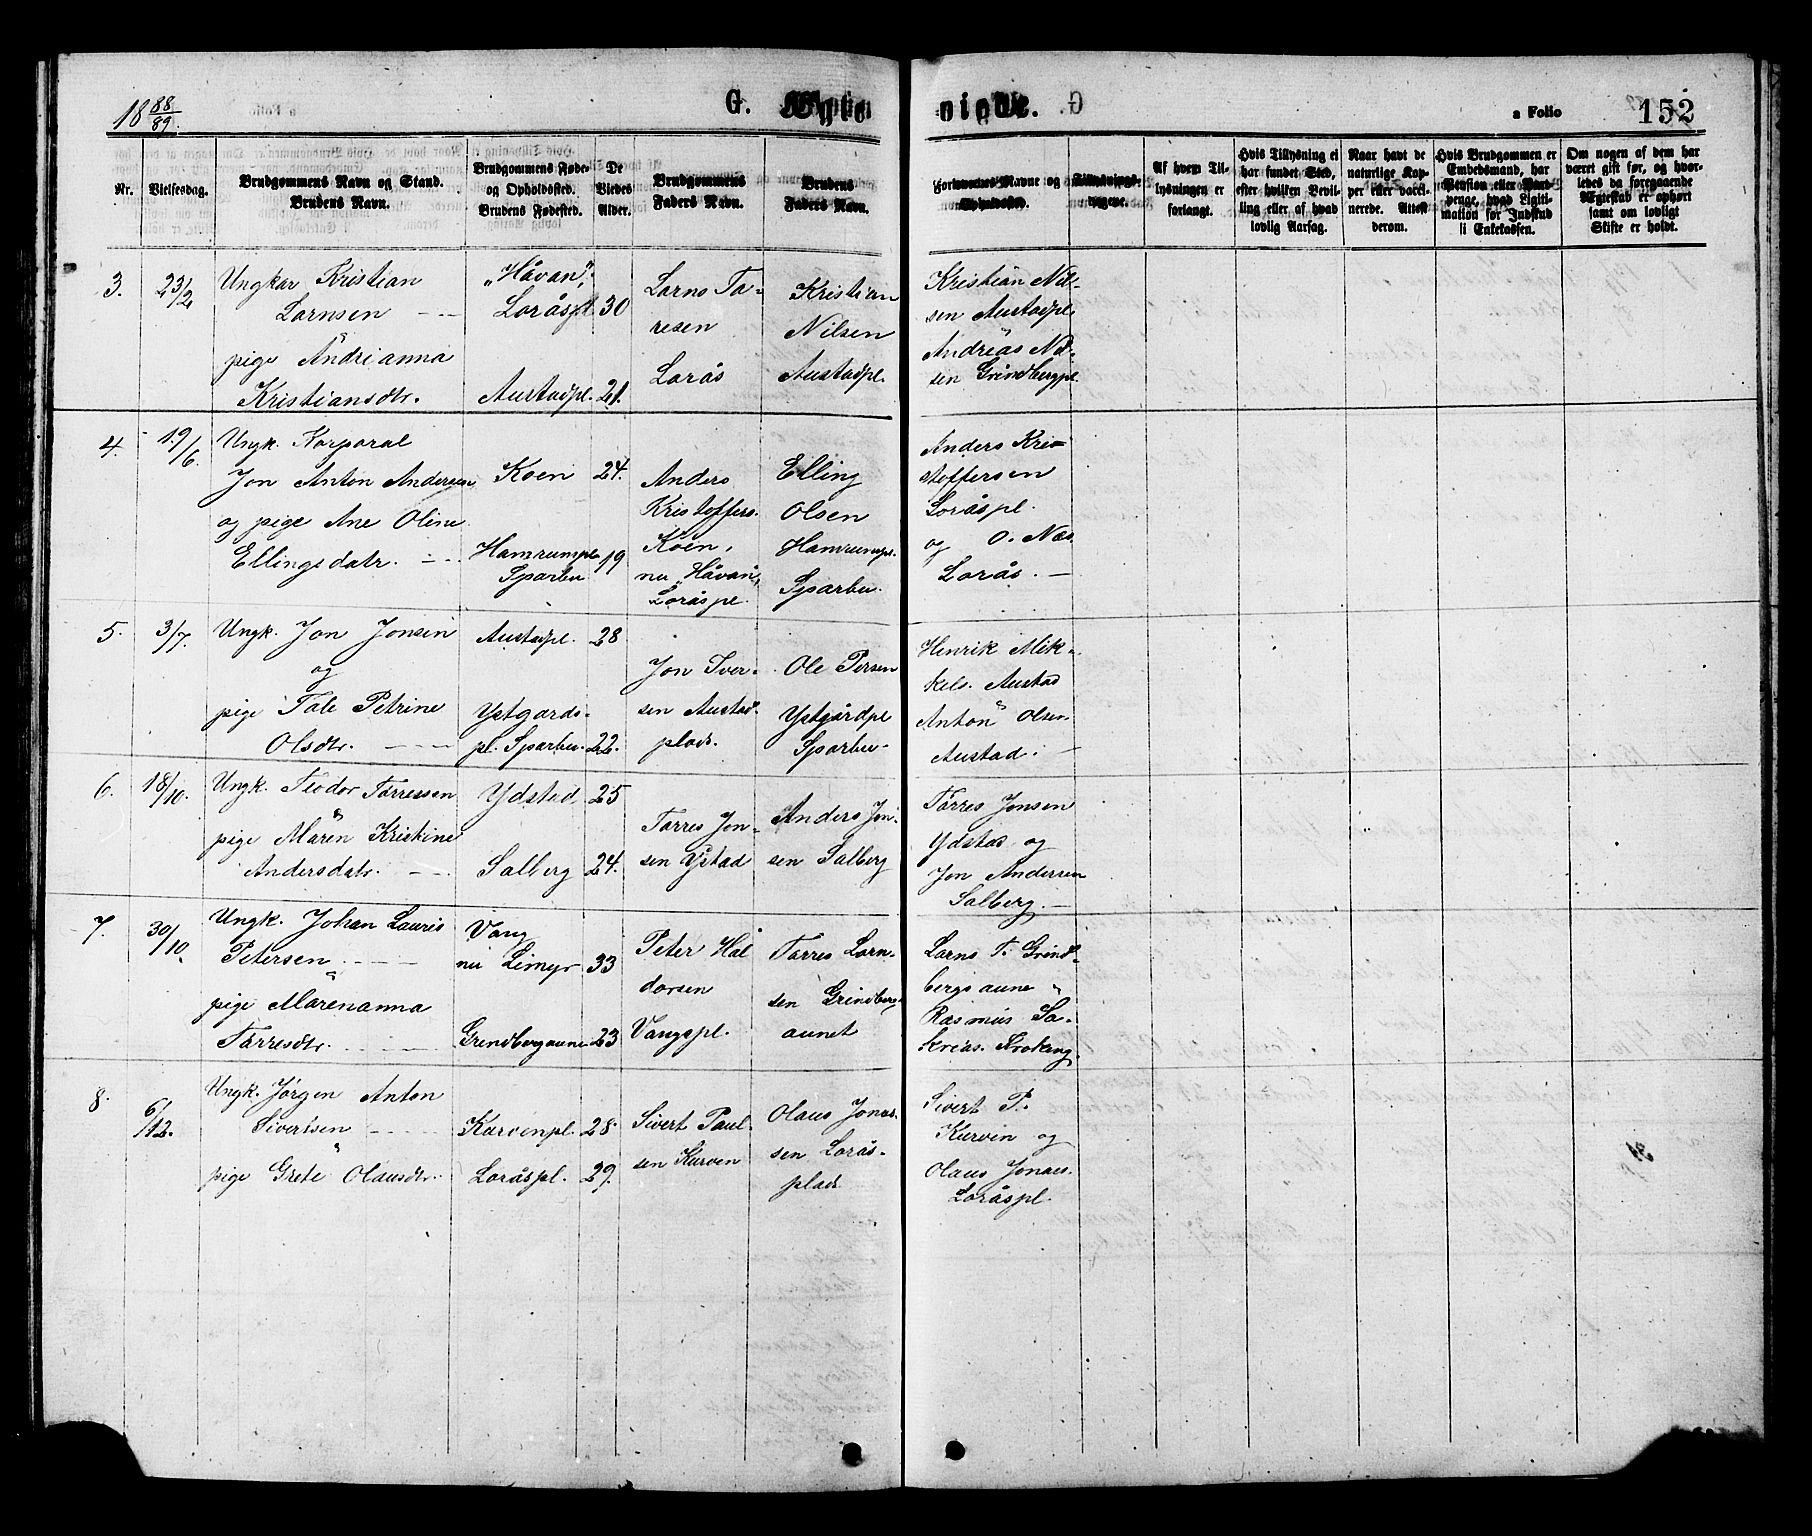 18 88/89.
G. Ægte
viede.
a Folio
152
Nr.
Vielsesdag.
Brudgommens Navn og Stand.
Brudens Navn.
Brudgommens Føde-
og Opholdssted.
Brudens Fødested.
De
Viedes
Alder.
Brudgommens
Faders Navn.
Brudens
Faders Navn.
Forlovernes Navne og
Opholdssted.
Tillysnings-
dagene.
Af hvem Til-
lysningen er
forlangt.
Hvis Tillysning ei
har fundet Sted,
efter hvilken Bevil-
ling eller af hvad
lovlig Aarsag.
Naar havt de
naturlige Kop-
per eller vacci-
nerede. Attest
derom.
Hvis Brudgommen er
Embedsmand, har
Pension eller Vart-
penge, hvad Ligiti-
mation for Indskud
i Enkekassen.
Om nogen af dem har
været gift før, og hvor-
ledes da foregaaende
Ægteskab er ophørt
samt om lovligt
Skifte er holdt.
3.
23/2
Ungkar Kristian
Larnsen
pige Andrianna
Kristiansdtr.
„Håvan",
Loråspl.
Austadpl.
30
21.
Larns To-
resen
Lorås
Kristian
Nilsen
Austadpl.
Kristian Nil-
sen Austadpl.
Andreas Nil-
sen Grindbergpl.
4.
19/6.
Ungk. Korporal
Jon Anton Andersen
og pige Ane Oline
Ellingsdatr.
Koen
Hamrumpl.
Sparbu
24.
19
Anders
Kristoffers.
Koen,
nu „Håvan"
Loråspl.
Elling
Olsen
Hamrumpl.
Sparbu.
Anders Kris-
stoffersen
Loråspl.
og O. Næs.
Lorås.
5.
3/7.
Ungk. Jon Jonsen
og
pige Tale Petrine
Olsdtr.
Austadpl.
Ystgards-
pl. Sparbu.
28
22.
Jon Iver-
sen Austad-
plads.
Ole Persen
Ystgårdpl
Sparbu-
Henrik Mik-
kels. Austad
Anton Olsen
Austad.
6.
18/10.
Ungk. Teodor Tørressen
pige Maren Kristine
Andersdatr.
Ydstad
Salberg
25
24.
Tørres Jon-
sen Ystad
Anders Jon-
sen Salberg
Tørres Jonsen
Ydstad og
Jon Andersen
Salberg.
7.
30/10.
Ungk. Johan Lauris
Petersen
pige Marenanna
Tørresdtr.
Vang
nu Limyr
Grindbergaune
33
23
Peter Hal
dorsen
Vangspl.
Tørres Larn-
sen Grindberg-
aunet
Larns T. Grind-
bergsaune
Rasmus Sa-
krias. Kroking.
8.
6/12.
Ungk. Jørgen Anton
Sivertsen
pige Grete Olausdtr.
Kurvenpl.
Loråspl.
28.
29.
Sivert Paul-
sen Kurven
Olaus Jonas-
sen Lorås-
plads
Sivert P.
Kurven og
Olaus Jonas.
Loråspl.